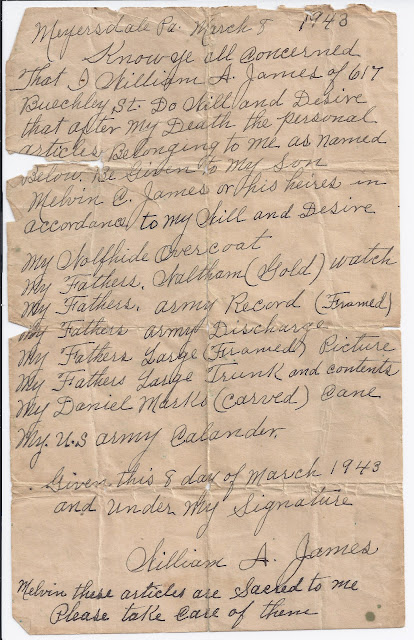 Meyersdale Pa. March 8 1943
Know ye all concerned
That I William A. James of 617
Buechley St. Do Will and Desire
that after My Death the personal
articles Belonging to me as named
Below. Be Given to My Son
Melvin C. James or his heires in
accordance, to my Will and Desire
My Wolfhide Overcoat
My Fathers. Waltham (Gold) watch
My Fathers. army Record (Framed)
My Fathers army Discharge
My Fathers Large (Framed) Picture
My Fathers Large Trunk and contents
My Daniel Marks (carved) Cane
My. U.S army Calander.
Given this 8 day of March 1943
and Under My Signature
William A. James
Melvin these articles are Sacred to me
Please take care of them